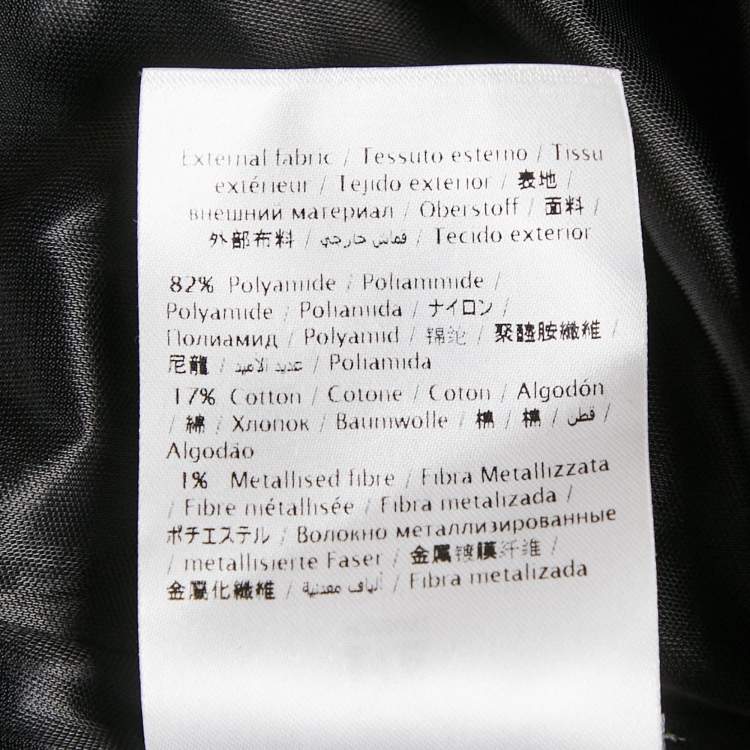 External fabric / Tessuto esterno / Tissu
extérieur / Tejido exterior / 表地 /
внешний материал / Oberstoff / 面料 /
外部布料 / قماش خارجي / Tecido exterior
82% Polyamide / Poliammide /
Polyamide / Poliamida / ナイロン /
Полиамид / Polyamid / 锦纶 / 聚醯胺纖維 /
尼龍 / عديد الاميد / Poliamida
17% Cotton / Cotone / Coton / Algodón
/ 綿 / Хлопок / Baumwolle / 棉 / 棉 / قطن /
Algodão
1% Metallised fibre / Fibra Metallizzata
/ Fibre métallisée / Fibra metalizada /
ポチエステル / Волокно металлизированные
/ metallisierte Faser / 金属镀膜纤维 /
金屬化纖維 / ألياف معدنية / Fibra metalizada